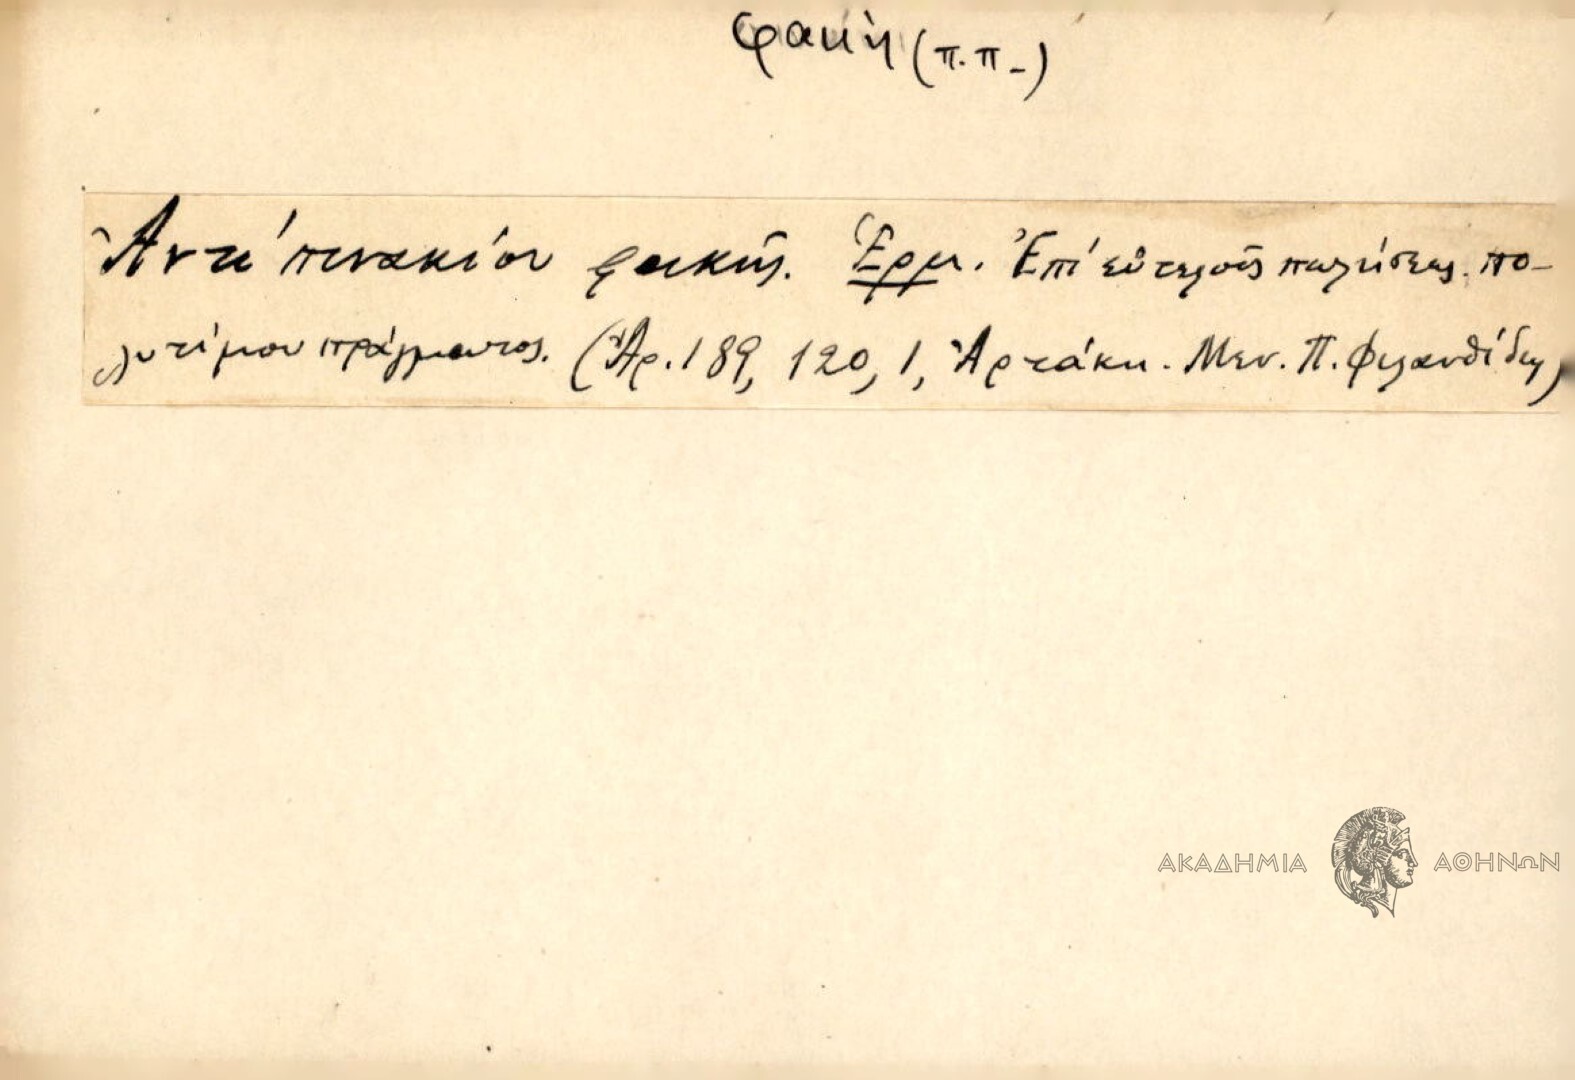 φακή (π.π-)
Ἀντί πινακίου φακῆς. Ἑρμ. Ἐπί εὐτελοῦς πωλήσεως πο-
λυτίμου πράγματος. (Ἀρ. 189, 120, 1, Ἀρτάκη. Μεν. Π. Φιλανθίδης)
ΑΚΑΔΗΜΙΑ ΑΘΗΝΩΝ